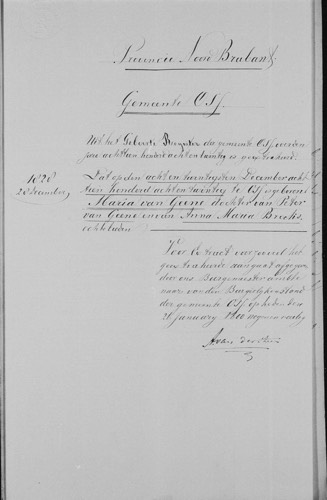 Provincie Noord Braband.
Gemeente Oss.
Uit het Geboorte Register der gemeente Oss over den
jare achttien honderd acht en twintig is geextraheerd
1828
28 December
Dat op den acht en twintigsten December acht
tien honderd acht en twintig te Oss is geboren
Maria van Giene dochter van Peter
van Giene en van Anna Maria Broks,
echtelieden
Voor Extract voor zooveel het
door ons Burgemeester ambte
naar van den Burgerlyken stand
der gemeente Oss op heden den
January